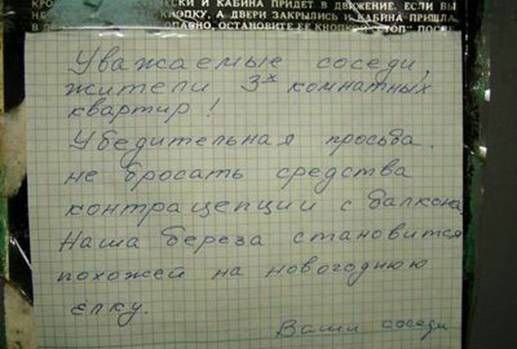 КРО ЧЕСКИ И КАБИНА ПРИДЕТ В ДВИЖЕНИЕ. ЕСЛИ ВЫ
НЕ КНОПКУ, А ДВЕРИ ЗАКРЫЛИСЬ И КАБИНА ПРИШЛА
В ОСТАНОВИТЕ ЕЕ КНОПКОЙ „СТОП" ПОСЛЕ
Уважаемые соседи,
жители 3х комнатных
квартир!
Убедительная просьба.
не бросать средства
контрацепции с балкона.
Наша береза становится
похожей на новогоднюю
ёлку.
Ваши соседи